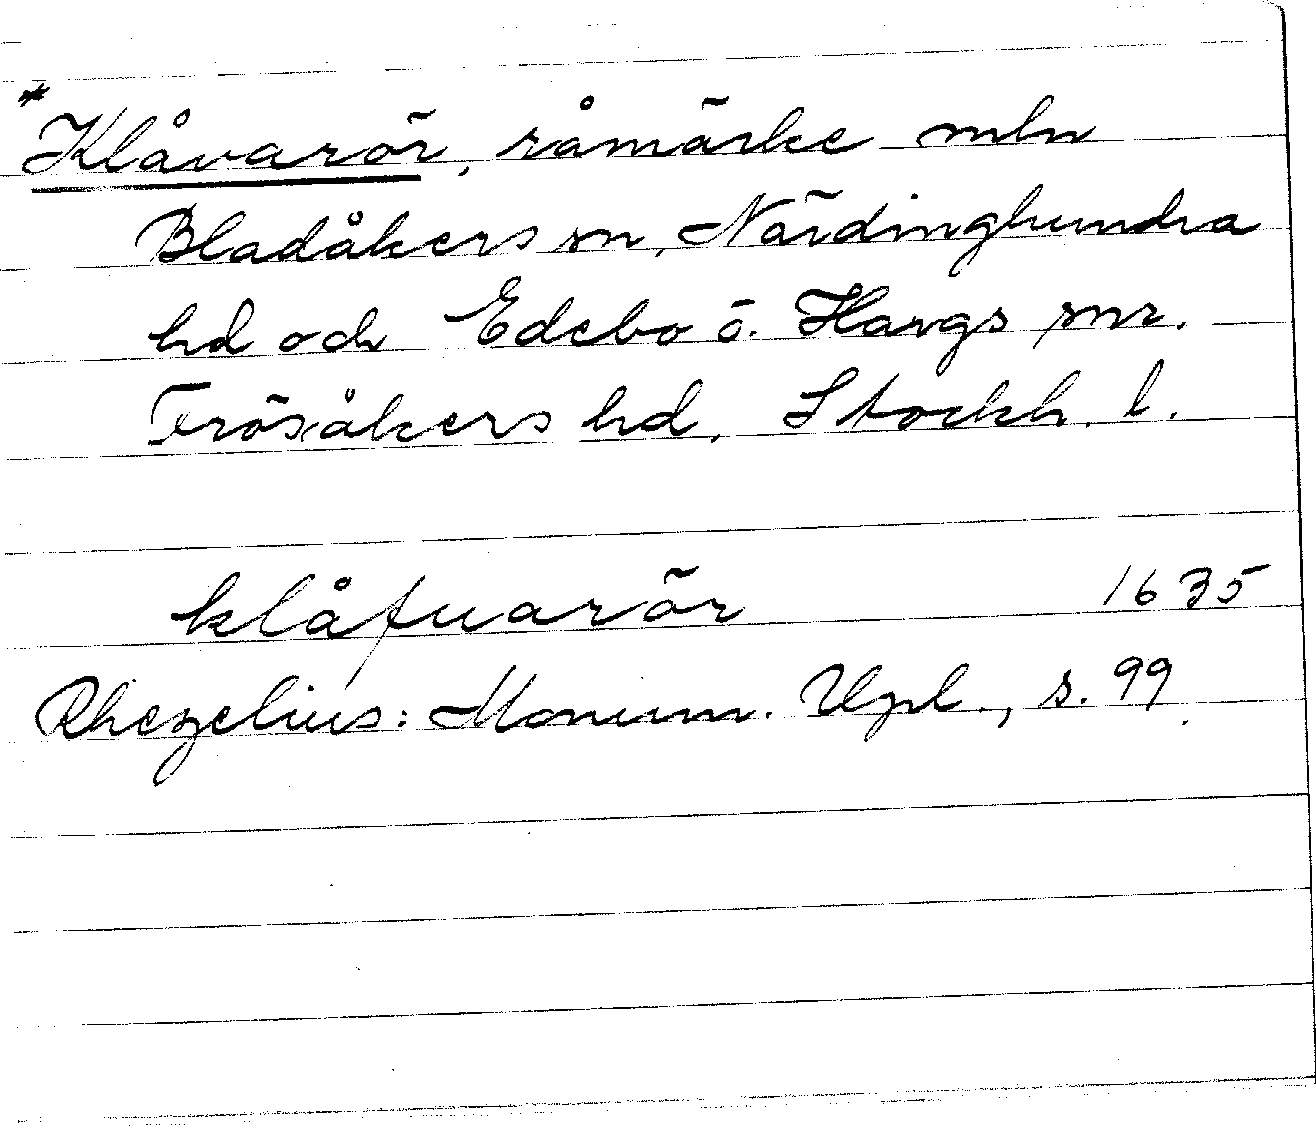 *Klåvarör, råmärke mln
Bladåkers sn, Närdinghundra
hd och Edebo o. Hargs snr.
Frösåkers hd, Stockh. l.
klåfuarör 1635
Rhezelius: Monum. Upl., s. 99.